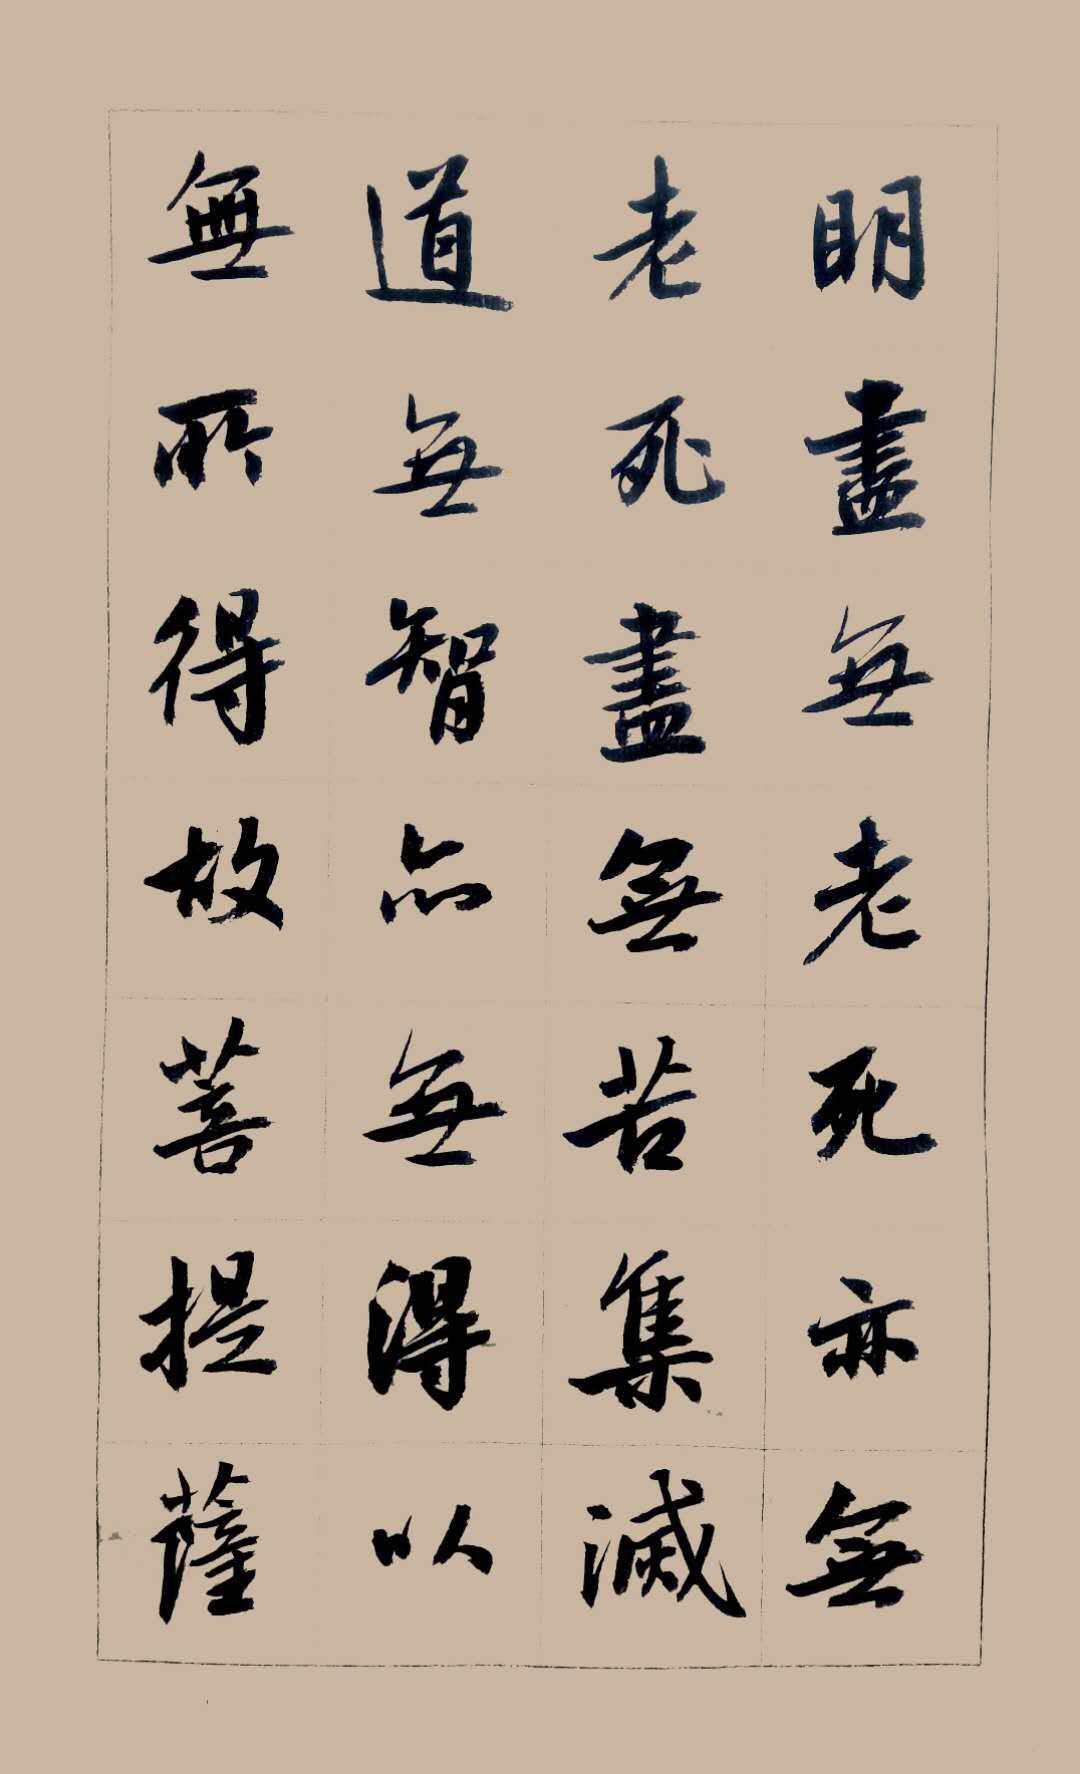 明盡無老死亦無
老死盡無苦集滅
道無智亦無得以
無所得故菩提薩